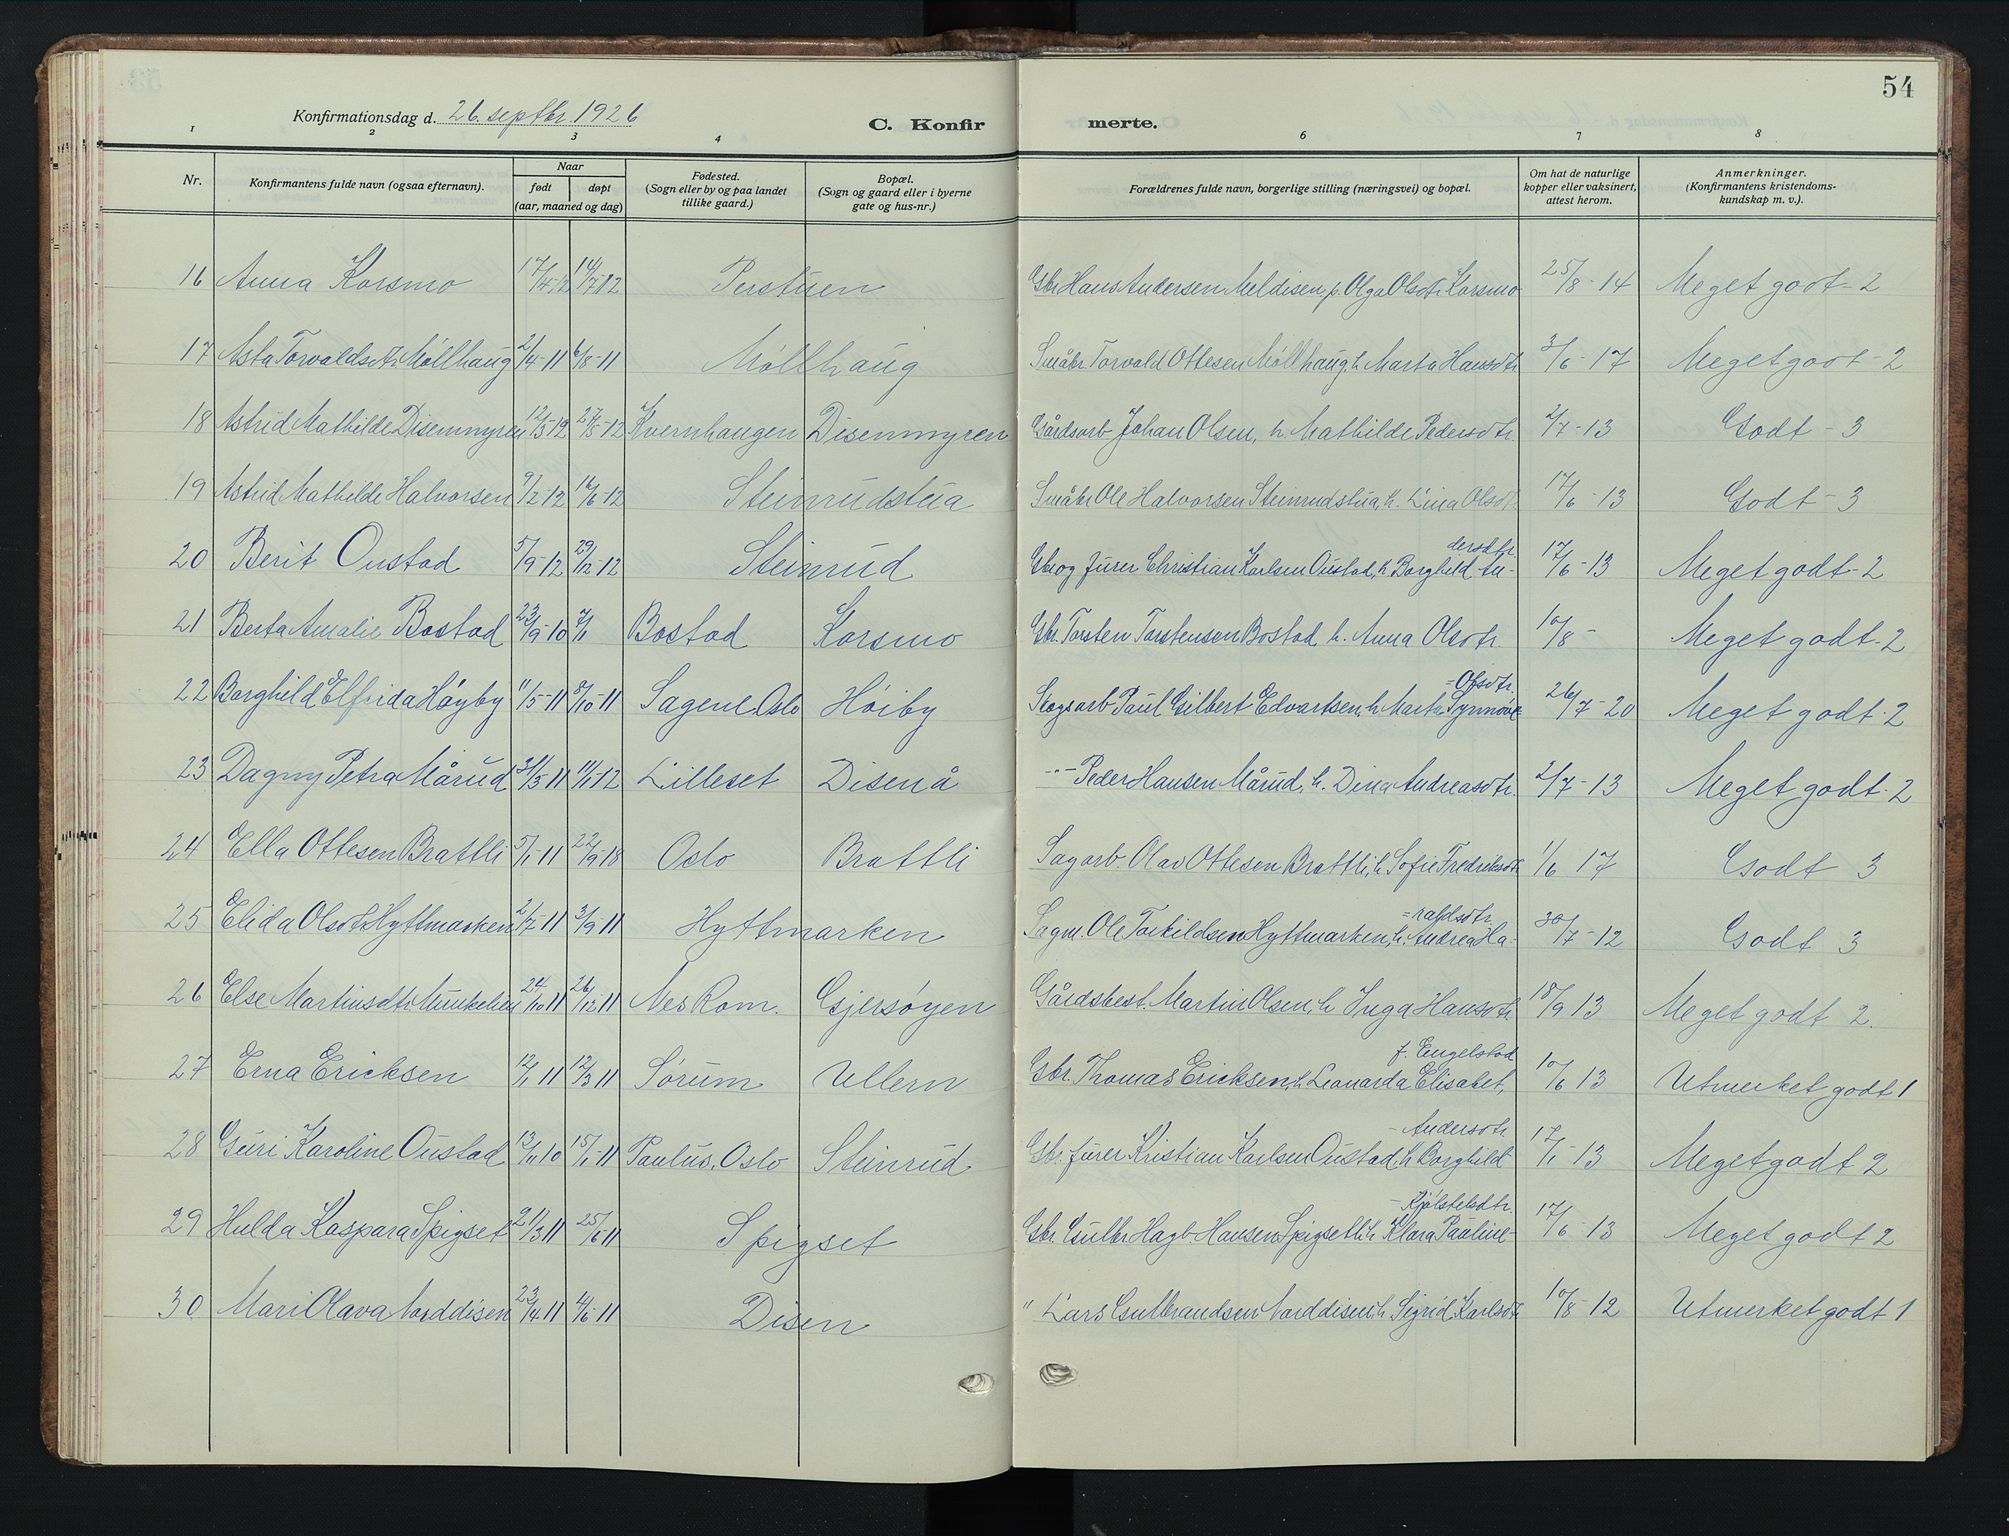 54
Konfirmationsdag d. 26. septbr. 1926
C. Konfirmerte.
1 2 3 4 6 7 8
Nr. Konfirmantens fulde navn (ogsaa efternavn). Naar født døpt (aar, maaned og dag) Fødested. (Sogn eller by og paa landet tillike gaard.) Bopæl. (Sogn og gaard eller i byerne gate og hus-nr.) Forældrenes fulde navn, borgerlige stilling (næringsvei) og bopæl. Om hat de naturlige kopper eller vaksinert, attest herom. Anmerkninger. (Konfirmantens kristendomskundskap m. v.).
16 Anna Korsmo 17/4-12 14/7-12 Perstuen Gbr Hans Andersen Meldisen, p. Olga Olsdtr Korsmo 25/8-14 Meget godt-2
17 Asta Torvaldsdtr Møllhaug 2/4-11 6/8-11 Møllhaug Småbr. Torvald Ottesen Møllhaug, h. Marta Hansdtr 3/6-17 Meget godt-2
18 Astrid Mathilde Disenmyren 12/5-12 27/5-12 Kvernhaugen Disenmyren Gårdsarb Johan Olsen, h. Mathilde Pedersdtr. 2/7-13 Godt-3
19 Astrid Mathilde Halvorsen 9/2-12 16/6-12 Steinrudstua Småbr Ole Halvorsen Steinrudstua, h. Lina Olsdtr 17/6-13 Godt-3
20 Berit Oustad 5/9-12 29/12-12 Steinrud Gbr og furer Christian Karlsen Oustad, h. Borghild An-dersdtr. 17/6-13 Meget godt-2
21 Berta Amalie Bostad 23/9-10 7/1 Bostad Korsmo Gbr. Torsten Torstensen Bostad h. Anna Olsdtr. 10/8- Meget godt-2
22 Borghild Elfrida Høyby 11/5-11 8/10-11 Sagene. Oslo Høiby Skogsarb Paul Gilbert Edvartsen, h Marta Synnøve =Olsdtr. 26/7-20 Meget godt-2
23 Dagny Petra Mårud 31/5-11 14/1-12 Lilleset Disenå -"- Peder Hansen Mårud, h. Dina Andreasdtr. 2/7-13 Meget godt-2
24 Ella Ottesen Brattli 5/1-11 22/9-18 Oslo Brattli Sagarb. Olav Ottesen Brattli, h Sofie Fredriksdtr 1/6 17 Godt 3
25 Elida Olsdtr Hyttmarken 2/7-11 3/9-11 Hyttmarken Sagm. Ole Torkildsen Hyttmarken h. Andrea Ha-=raldsdtr 30/7-12 Godt 3
26 Else Martinsdtr. Munkelien 24/10 11 26/12-11 Nes Rom. Gjersøyen Gårdsbest. Martin Olsen, h Inga Hansdtr 18/9 13 Meget godt 2.
27 Erna Ericksen 12/1 11 12/3 11 Sørum Ullern Gbr. Thomas Ericksen, h Leonarda Elisabet, f. Engelstad 10/6 13 Utmerket godt 1
28 Guri Karoline Oustad 13/11 10 15/1-11 Paulus, Oslo Steinrud Gbr. furer Kristian Karlsen Oustad, h Borghild -Andersdtr 17/1-13 Meget godt 2
29 Hulda Kaspara Spigset 21/3 11 25/6 11 Spigset Gbr. Gulbr Hagb. Hansen Spigset h Klara Pauline- 17/6-13 Meget godt 2
30 Mari Olava Norddisen 23/4 11 4/6-11 Disen " Lars Gulbrandsen Norddisen, h Sigrid Karlsdtr 10/8-12 Utmerket godt 1